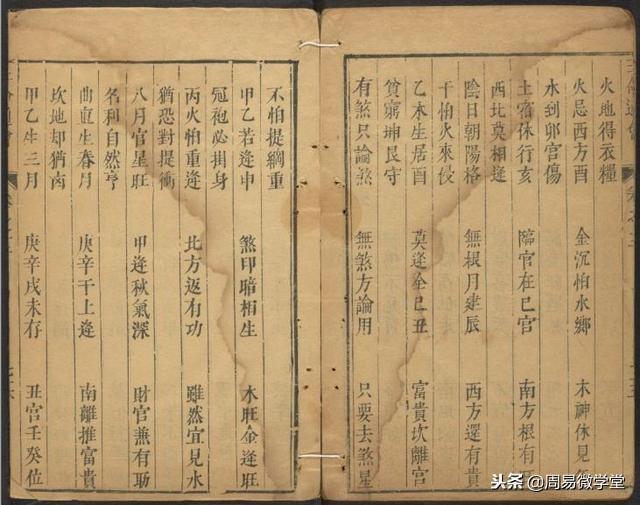 火地得衣糧
火忌西方酉 金沉怕水鄉 木神休見
水到卯宮傷
土宿休行亥 臨官在巳宮 南方根有
西北莫相逢
陰日朝陽格 無根月建辰 西方還有貴
干怕火來侵
乙木生居酉 莫逢全巳丑 富貴坎離宮
貧窮坤艮守
有煞只論煞 無煞方論用 只要去煞星
不怕提綱重
甲乙若逢申 煞印暗相生 木旺金逢旺
冠袍必掛身
丙火怕重逢 北方返有功 雖然宜見水
猶恐對提衝
八月官星旺 甲逢秋氣深 財官兼有助
名利自然亨
曲直生春月 庚辛干上逢 南離推富貴
坎地却猶凶
甲乙生三月 庚辛戌未存 丑宮壬癸位
头条 @周易微学堂